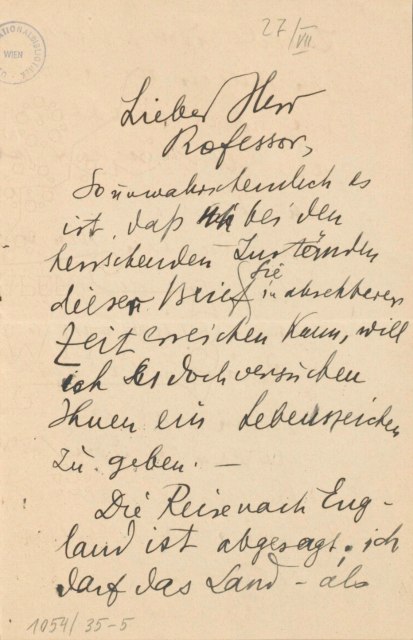 27/VII.
NATIONALBIBLIOTHEK
WIEN
Lieber Herr
Professor,
So unwahrscheinlich es
ist, daß bei den
herrschenden Zuständen
Sie
dieser Brief in absehbarer
Zeit erreichen kann, will
ich es doch versuchen
Ihnen ein Lebenszeichen
zu geben. —
Die Reise nach Eng-
land ist abgesagt, ich
darf das Land – als
1054/35-5